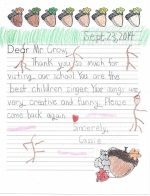 Sept 23, 2014
Dear Mr Crow,
Thank you so much for
visiting our school. You are the
best children singer. Your songs are
very creative and funny. Please
come back again.
Sincerely,
Cassie